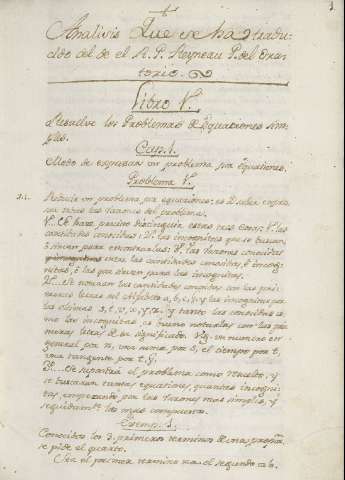 Analisis Que se ha tradu-
cido del de el R. P. Reyneau P. del Ora-
torio.
Libro 1º.
Resuelve los Problemas de Equaciones sim-
ples.
Cap. 1.
Modo de expresar un problema por equationes.
Problema 1º.
Reducir un problema por equaciones; es
todas las razones del problema.
1º. Es preciso distinguir estas tres cosas: 1º las
cantidades conocidas; 2º las incognitas que se buscan,
o sirven para encontrarlas; las razones conocidas
entre las cantidades conocidas, é incog-
nitas, é las que sirven para las incognitas.
2º... Se nombran las cantidades conocidas con las pri-
meras letras del Alfabeto a, b, c, y las incognitas por
las ultimas s, t, v, x, y, z. y tanto las conocidas co-
mo las incognitas, es bueno notarlas con las pri-
meras letras de su significado. Vg. un numero en
general por n, una suma por s, el tiempo por t,
una tangente por t. &.
3º... Se supondrá el problema como resuelto, y
se buscaran tantas equationes, quantas incogni-
tas, empezando por las razones mas simples, y
seguidamte. las mas compuestas.
Exemp. 1.
Conocidos los 3. primeros terminos de una propon.
se pide el quarto.
Sea el primer termino = a. el segundo = b.